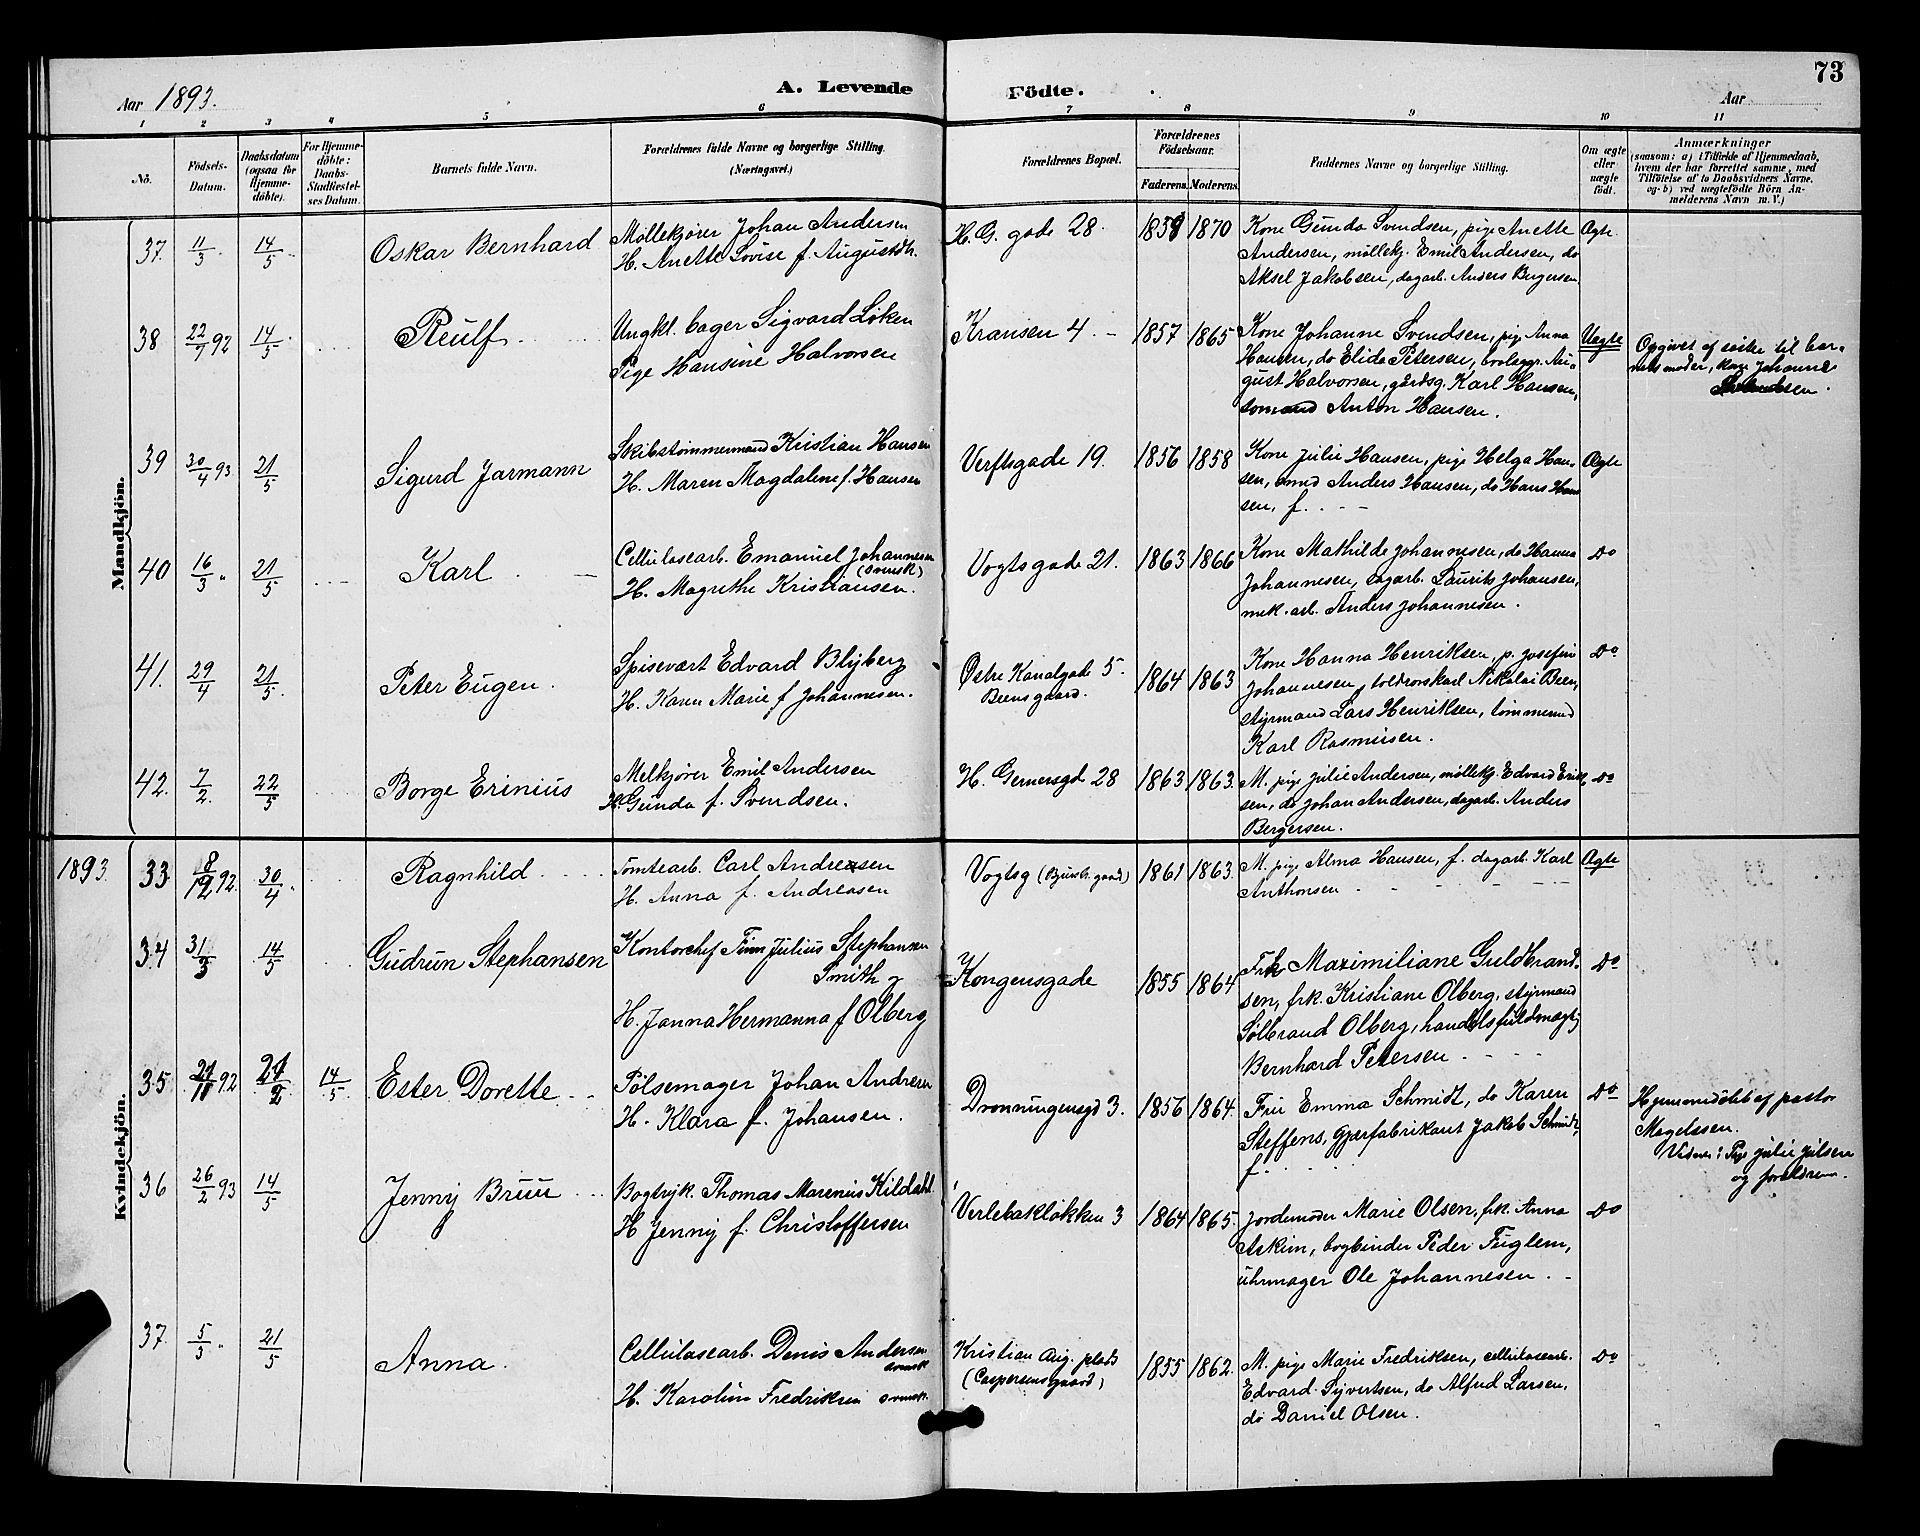 73
Aar 1893.
A. Levende
Födte.
Aar
1 2 3 4 5 6 7 8 9 10 11
No.
Födsels-Datum.
Daabsdatum (ogsaa for Hjemmedöbte).
For Hjemmedöbte: Daabs-Stadfæstelses Datum.
Barnets fulde Navn.
Forældrenes fulde Navne og borgerlige Stilling.
(Næringsvei.)
Forældrenes Bopæl.
Forældrenes Födselsaar.
Faderens. Moderens.
Faddernes Navne og borgerlige Stilling.
Om ægte eller uægte födt.
Anmærkninger
(saasom: a) i Tilfælde af Hjemmedaab, hvem der har forrettet samme, med Tilföielse af to Daabsvidners Navne, og b) ved uægtefödte Börn Anmelderens Navn m. V.)
Mandkjön.
37. 11/3 " 14/5 Oskar Bernhard
Møllekjører Johan Andersen
H. Anette Lovise f. Augustdtr.
H. G. gade 28. 1859 1870
Kone Gunda Svendsen, pige Anette
Andersen, møllekj. Emil Andersen, do
Aksel Jakobsen, dagarb. Anders Bergersen
Ægte.
38 22/7 92 14/5 Reulf
Ungkl. bager Sigvard Løken
Pige Hansine Halvorsen
Kransen 4. 1857 1865
Kone Johanne Svendsen, pige Anna
Hansen, do Elida Petersen, boelegger August Halvorsen, gårdsg. Karl Hansen,
sømand Anton Hansen.
Uægte
Opgivet af søster til barnets moder, kone Johanne
39 30/4 93 21/5 Sigurd Jarmann
Skibstømmermand Kristian Hansen
H. Maren Magdalene f. Hansen
Verftsgade 19. 1856 1858
Kone Julie Hansen, pige Helga Hansen, Anders Hansen, do Hans Hansen, f.
Ægte
40 16/3 " 21/5 Karl
Cellulosearb. Emanuel Johannesen
(svensk)
H. Magrethe Kristiansen.
Vogtsgade 21. 1863 1866
Kone Mathilde Johannesen, do Hanna
Johannesen, dagarb. Laurits Johansen,
mek. arb. Anders Johannesen.
Do
41. 29/4 21/5. Peter Eugen.
Spisevært Edvard Blyberg
H. Karen Marie f Johannesen.
Østre Kanalgade 5.
Beensgaard.
1864 1863
Kone Hanna Henriksen, p. Josefin
Johannesen, toldrorskarl Nikolai Been,
styrmand Lars Henriksen, tømmermd
Karl Rasmusen.
Do
42. 7/2. 22/5 Borge Erinius
Melkjører Emil Andersen
H. Gunda f. Svendsen.
H. Gernersgd 28 1863 1863.
M. pige Julie Andersen, møllekj. Edvard Eriksen, do Johan Andersen, dagarb. Anders
Bergersen.
Do
1893
Kvindekjön.
33 8/12 92. 30/4. Ragnhild
Tomtearb. Carl Andreasen
H. Anna f. Andreasen
Vogtsg 1861 1863.
M. pige Alma Hansen, f. dagarb. Karl
Anthonsen
Ægte
34 31/3 14/5 Gudrun Stephansen
Kontorchef Finn Julius Stephansen
Smith og
H. Janna Hermanna f Olberg
Kongensgade 1855 1864
Frk Maximiliane Guldbrandsen, frk. Kristiane Olberg, styrmand
Sølbrand Olberg, handelsfuldmægtig
Bernhard Petersen
Do
35 21/11 92 24/2 14/5. Ester Dorette
Pølsemager Johan Andresen
H. Klara f. Johansen.
Dronningensgd 3. 1856 1864.
Frue Emma Schmidt, do Karen
Steffens, gjærfabrikant Jakob Schmidt,
f.
Do
Hjemmedøbt af pastor
Magelssen.
Vidner: Pige Julie Julsen
og forældrene.
36 26/2 93 14/5 Jenny Bruu
Bogtryk. Thomas Marenius Kildahl
H Jenny f. Christoffersen
Verlebakløkken 3 1864 1865.
Jordemoder Marie Olsen, frk. Anna
Askim, bogbinder Peder Fuglem,
uhrmager Ole Johannesen.
Do
37. 5/3 " 21/5 Anna.
Cellulosearb. Denis Andersen
svensk
H. Karoline Fredriksen svensk.
Kristian Aug. plads
(Caspersensgaard)
1855 1862.
M. pige Marie Fredriksen, cellulosearb.
Edvard Syvertsen, do Alfred Larsen,
do Daniel Olsen.
Do